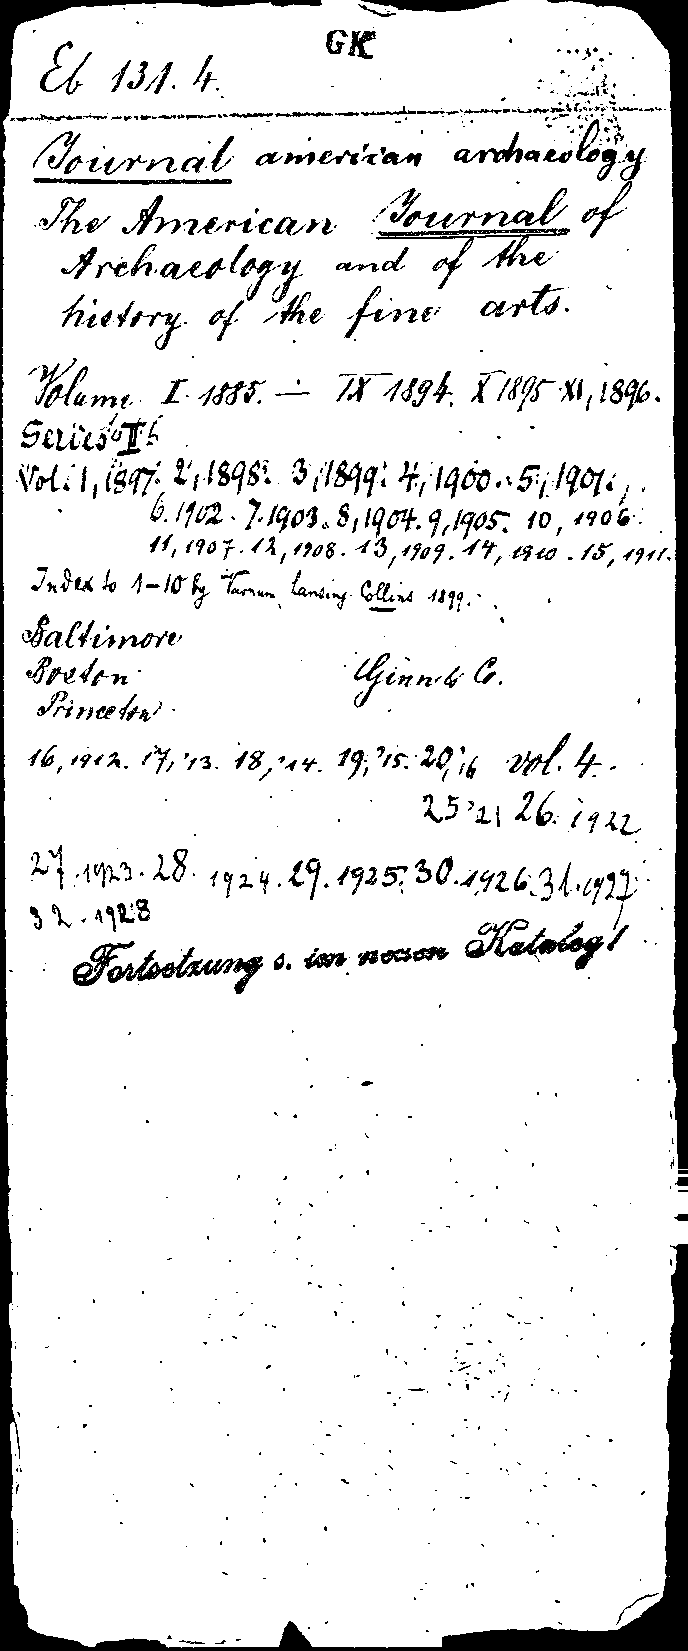 GK
Eb 131. 4.
Journal american archaeology
The American Journal of
Archaeology and of the
history of the fine arts.
Volume I. 1885. — IX 1894. X 1895 XI, 1896.
Series II
Vol. 1, 1897. 2, 1898. 3, 1899. 4, 1900. 5, 1901.,
6. 1902. 7. 1903. 8, 1904. 9, 1905. 10, 1906.
11, 1907. 12, 1908. 13, 1909. 14, 1910. 15, 1911.
Index to 1–10 by Varnum Lansing Collins 1899.
Baltimore
Boston Ginn & Co.
Princeton
16, 1912. 17, '13. 18, '14. 19, '15. 20, '16 vol. 4.
25 '21 26. 1922
27. 1923. 28. 1924. 29. 1925. 30. 1926. 31. 1927
32. 1928
Fortsetzung s. im neuen Katalog!